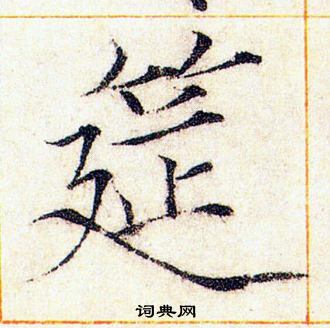 筵
词典网